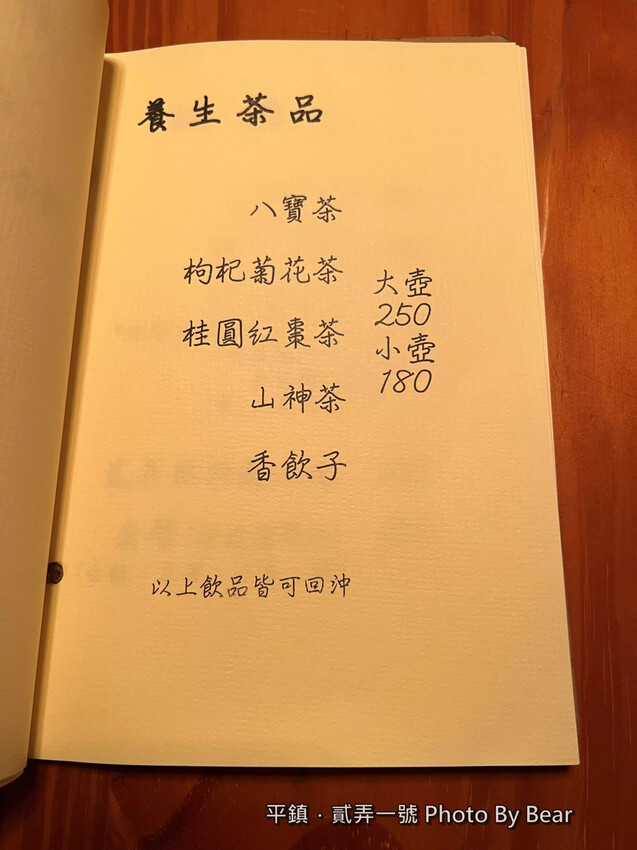 養生茶品
八寶茶
枸杞菊花茶
桂圓紅棗茶
山神茶
香飲子
大壺
250
小壺
180
以上飲品皆可回沖
平鎮．貳弄一號 Photo By Bear